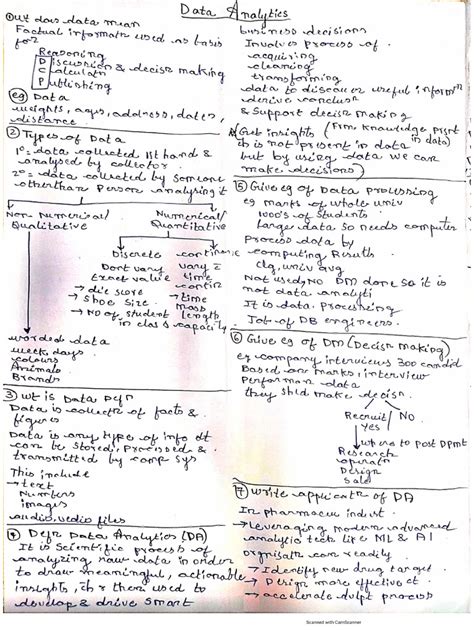 Data Analytics
① Wt does data mean
Factual informatn used as basis
for
Reasoning
Discussion & decisn making
Calculatn
Publishing
eg Data
weights, ages, address, dates,
distance.
② Types of Data
1° = data collected 1st hand &
analysed by collector.
2° = data collected by someone
other than person analysing it
Non Numerical/
Qualitative
Numerical/
Quantitative
Discrete
Dont vary
Exact value
→ dice score
→ Shoe Size
→ No of student
in class
time
→ time
mass
length
capacity
worded data
week days
colours
Animals
Brands
③ wt is Data Defn
Data is collectn of facts &
figures
Data is any type of info dt
can be stored, Processed &
transmitted by comp sys
This include
→ text
Numbers
images
audio, vedio files
④ Defn Data Analytics (DA)
It is Scientific process of
analyzing raw data in order
to draw meaningful, actionable
insights, used to
develop & drive smart
business decisions
Involves process of
acquiring
cleaning
transforming
data to discover useful informtn
derive conclusn
& Support decisn making
Get insights (
it is not present in data
but by using data we can
make decisions)
⑤ Give eg of Data Processing
eg marks of whole univ
1000's of Students
Larger data so needs computer
Process data by
computing Results
clg, univ avg
Not used, No DM done so it is
not data analyti
It is data Processing
Job of DB engineers.
⑥ Give eg of DM (Decisn Making)
eg company interviews 300 candid
Based on marks, interview
Performan data
they shld make decisn.
Recruit / No
Yes
where to Post Dpmt
Research
operatn
Design
Sale
⑦ Write applicatn of DA
In pharmaceu indust.
→ Leveraging modern advanced
analytic tech like ML & AI
orgnisatn can readily
→ Identify new drug target
→ Design more effective ct
→ accelerate dvlpt process
Scanned with CamScanner